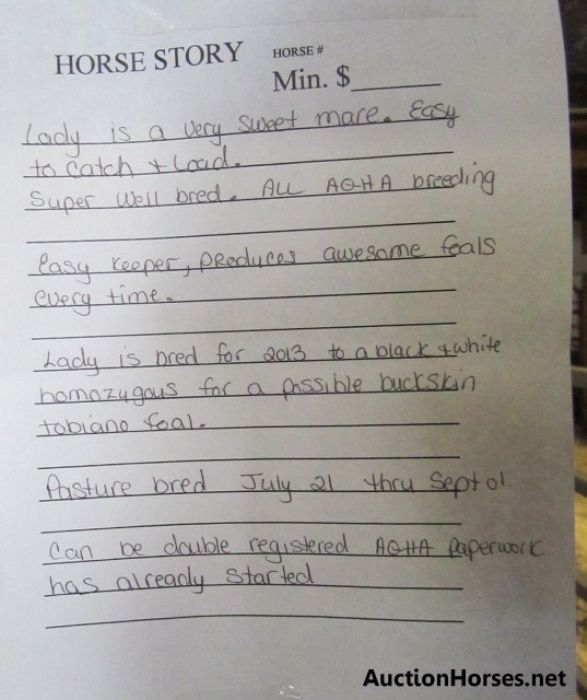 HORSE STORY HORSE #
Min. $
Lady is a very sweet mare. Easy
to catch + Load.
Super well bred. ALL AQHA breeding
Easy keeper, produces awesome foals
every time.
Lady is bred for 2013 to a black + white
homozygous for a possible buckskin
tobiano foal.
Pasture bred July 21 thru Sept 01
Can be double registered AQHA paperwork
has already started
AuctionHorses.net